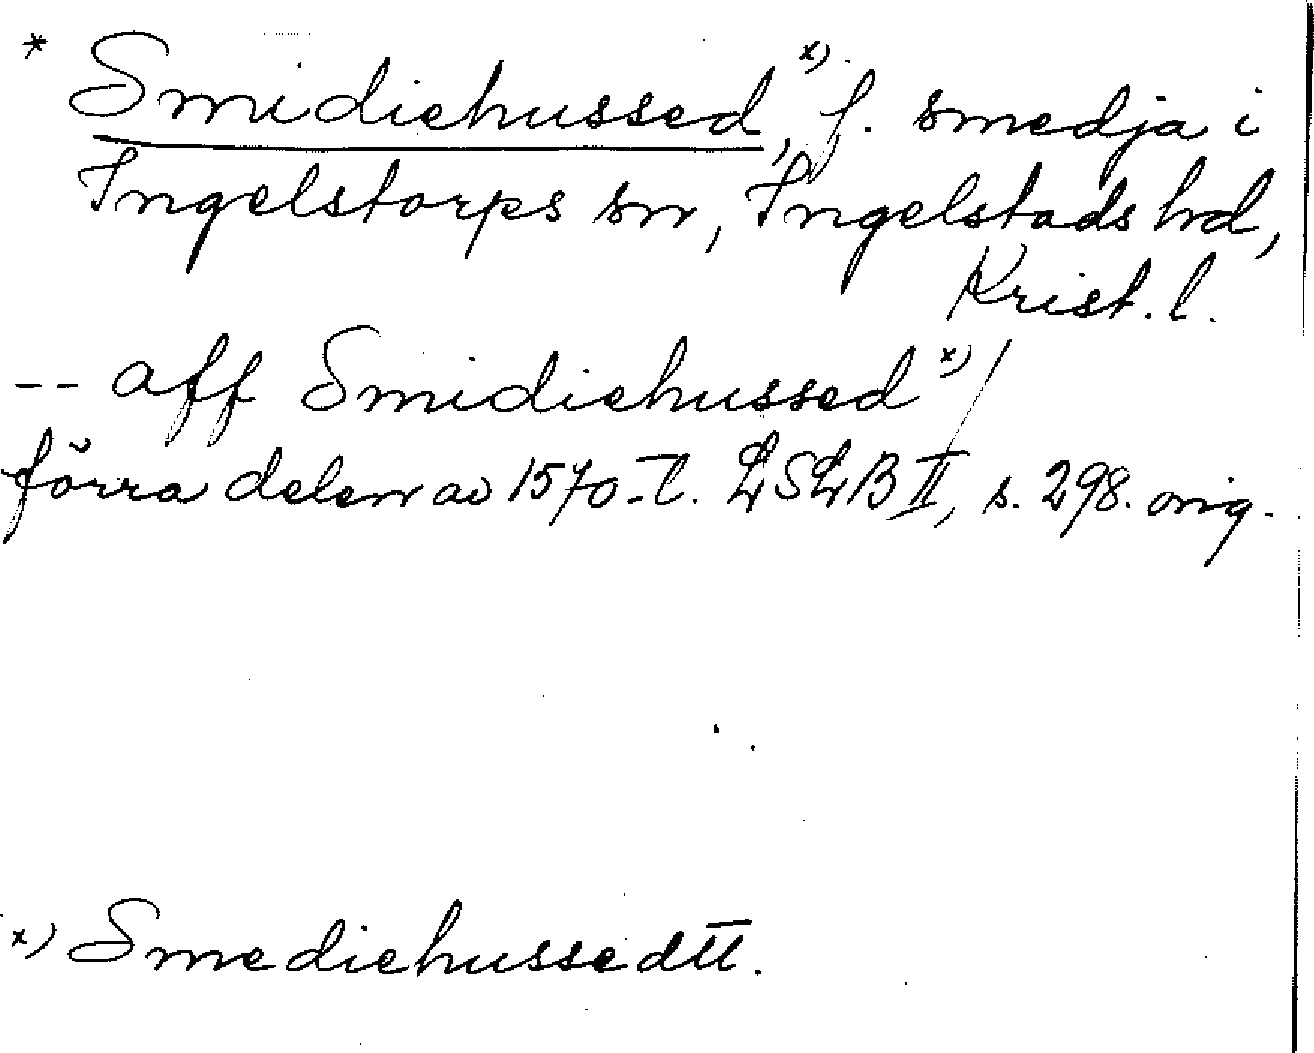 * Smidiehussed, x) f. smedja i
Ingelstorps sn, Ingelstads hd,
Krist. l.
-- aff Smidiehussed x) /
förra delen av 1570-t. LSLB II, s. 298. orig.
x) Smediehussedtt.